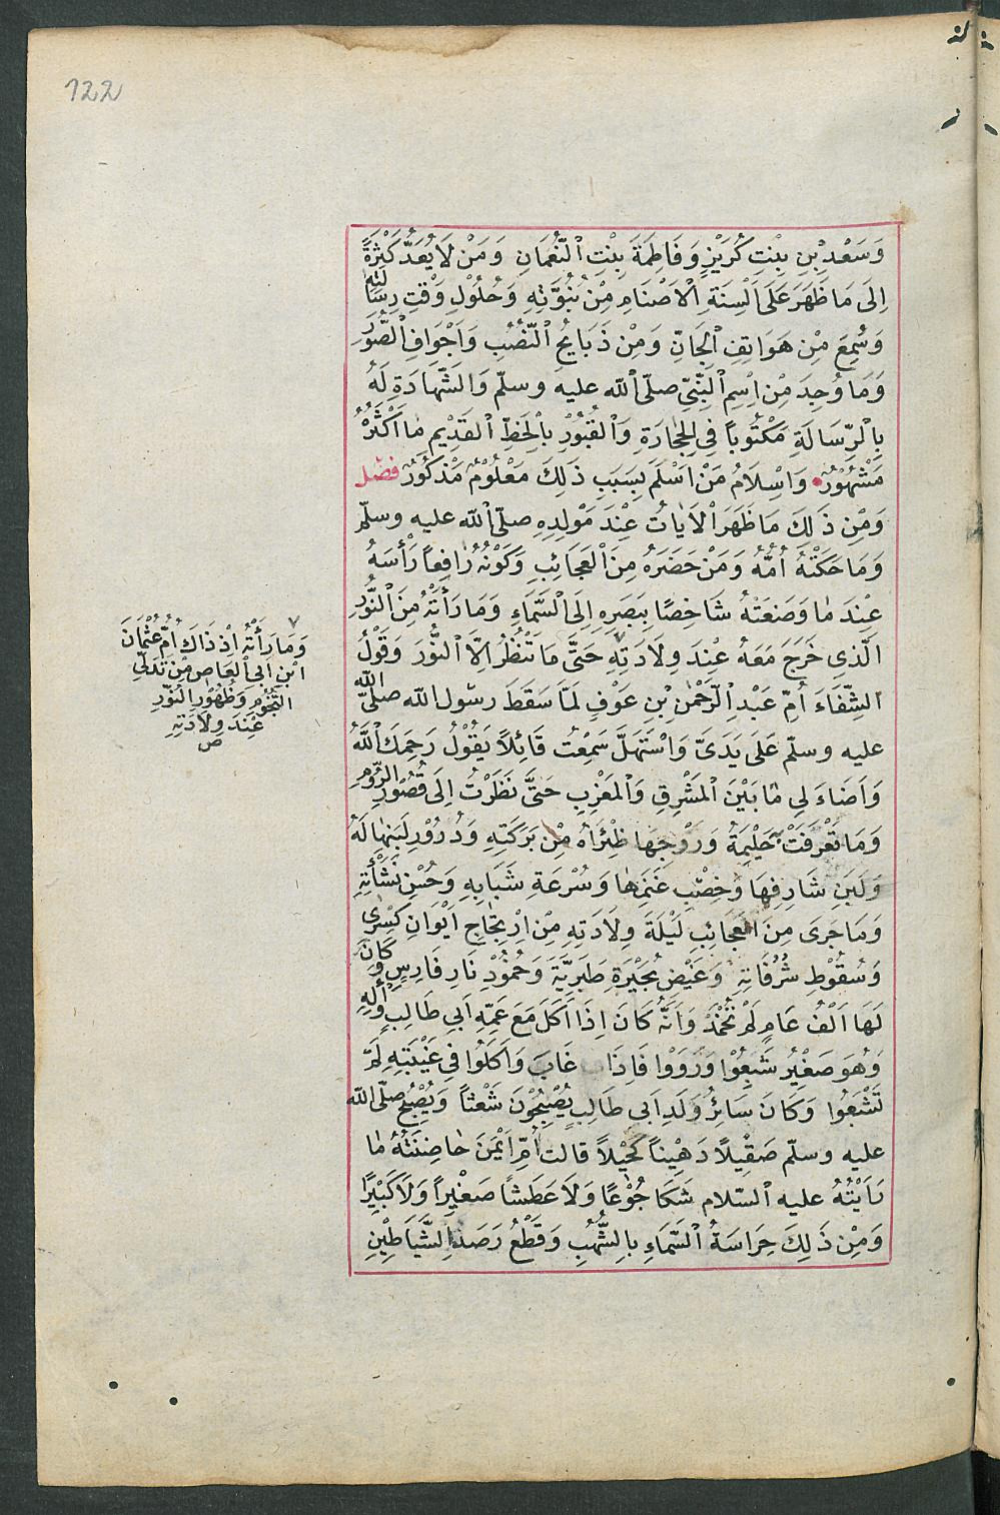 122
وَسَعْدِ بْنِ بِنْتِ كُرَيْزٍ وَفَاطِمَةَ بِنْتِ النُّعْمَانِ وَمَنْ لَا يُعَدُّ كَثْرَةً
اِلَى مَا ظَهَرَ عَلَى اَلْسِنَةِ الْاَصْنَامِ مِنْ نُبُوَّتِهِ وَحُلُوْلِ وَقْتِ رِسَالَتِهِ
وَسُمِعَ مِنْ هَوَاتِفِ الْجَانِّ وَمِنْ ذَبَايِحِ النُّصُبِ وَاَجْوَافِ الصُّوَرِ
وَمَا وُجِدَ مِنْ اِسْمِ النَّبِيِّ صلّى الله عليه وسلّم وَالشَّهَادَةِ لَهُ
بِالرِّسَالَةِ مَكْتُوبًا فِي الْحِجَارَةِ وَالْقُبُوْرِ بِالْخَطِّ الْقَدِيْمِ مَا اَكْثَرُهُ
مَشْهُوْرٌ وَاِسْلَامُ مَنْ اَسْلَمَ بِسَبَبِ ذَلِكَ مَعْلُوْمٌ مَذْكُوْرٌ فصل
وَمِنْ ذَلِكَ مَا ظَهَرَ الْاَيَاتُ عِنْدَ مَوْلِدِهِ صلّى الله عليه وسلّم
وَمَا حَكَتْهُ اُمُّهُ وَمَنْ حَضَرَهُ مِنَ الْعَجَائِبِ وَكَوْنُهُ رَافِعًا رَأْسَهُ
عِنْدَ مَا وَضَعَتْهُ شَاخِصًا بِبَصَرِهِ اِلَى السَّمَاءِ وَمَا رَأَتْهُ مِنَ النُّوْرِ
الَّذِي خَرَجَ مَعَهُ عِنْدَ وِلَادَتِهِ حَتَّى مَا تَنْظُرُ اِلَّا النُّوْرَ وَقَوْلُ
الشِّفَاءَ اُمِّ عَبْدِ الرَّحْمٰنِ بْنِ عَوْفٍ لَمَّا سَقَطَ رسول الله صلّى الله
عليه وسلّم عَلَى يَدَىَّ وَاسْتَهَلَّ سَمِعْتُ قَائِلًا يَقُوْلُ رَحِمَكَ اللّٰهُ
وَاَضَاءَ لِي مَا بَيْنَ الْمَشْرِقِ وَالْمَغْرِبِ حَتَّى نَظَرْتُ اِلَى قُصُوْرِ الرُّوْمِ
وَمَا تَعْرَفَتْ بِهِ حَلِيْمَةُ وَزَوْجُهَا ظِئْرَاهُ مِنْ بَرَكَتِهِ وَدُرُوْرِ لَبَنِهَا لَهُ
وَلَبَنِ شَارِفِهَا وَخِصْبِ غَنَمِهَا وَسُرْعَةِ شَبَابِهِ وَحُسْنِ نَشْأَتِهِ
وَمَا جَرَى مِنَ الْعَجَائِبِ لَيْلَةَ وِلَادَتِهِ مِنْ اِرْتِجَاجِ اَيْوَانِ كِسْرٰى
وَسُقُوْطِ شُرُفَاتِهِ وَغَيْضِ بُحَيْرَةِ طَبَرِيَّةَ وَخُمُوْدِ نَارِ فَارِسٍ وَكَانَ
لَهَا اَلْفُ عَامٍ لَمْ تُخْمَدْ وَاَنَّهُ كَانَ اِذَا اَكَلَ مَعَ عَمِّهِ اَبِي طَالِبٍ وَاٰلِهِ
وَهُوَ صَغْيْرٌ شَبِعُوْا وَرَوَوْا فَاِذَا غَابَ وَاَكَلُوا فِي غَيْبَتِهِ لَمْ
تَشْبَعُوا وَكَانَ سَائِرُ وَلَدِ اَبِي طَالِبٍ يُصْبِحُوْنَ شَعْثًا وَيُصْبِحُ صلّى الله
عليه وسلّم صَقِيْلًا دَهِيْنًا كَحِيْلًا قالت اُمُّ اَيْمَنَ حَاضِنَتُهُ مَا
رَاَيْتُهُ عليه السّلام شَكَا جُوْعًا وَلَا عَطَشًا صَغْيِرًا وَلَا كَبِيْرًا
وَمِنْ ذَلِكَ حِرَاسَةُ السَّمَاءِ بِالشُّهُبِ وَقَطْعُ رَصَدِ الشَّيَاطِيْنِ
وَمَا رَاَتْهُ اِذْ ذَاكَ اُمُّ عُثْمَانَ
ابْنِ ابي الْعَاصِ مِنْ تَدَلِّي
النُّجُوْمِ وَظُهُوْرِ النُّوْرِ
عِنْدَ وِلَادَتِهِ
ص